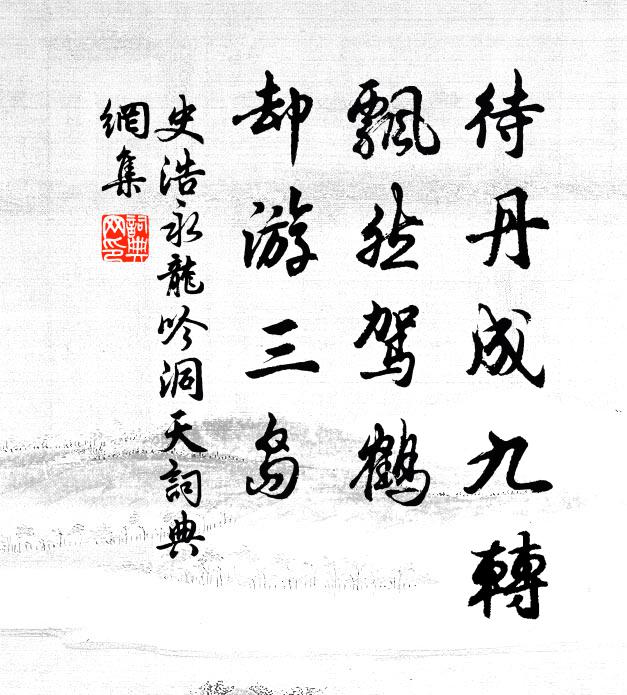 待丹成九轉
飄然駕鶴
却游三島
史浩永龍吟洞天詞典
網集
詞典網印